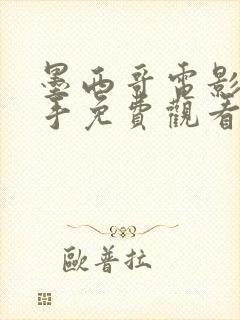 墨西哥電影
手免費觀看
歐普拉